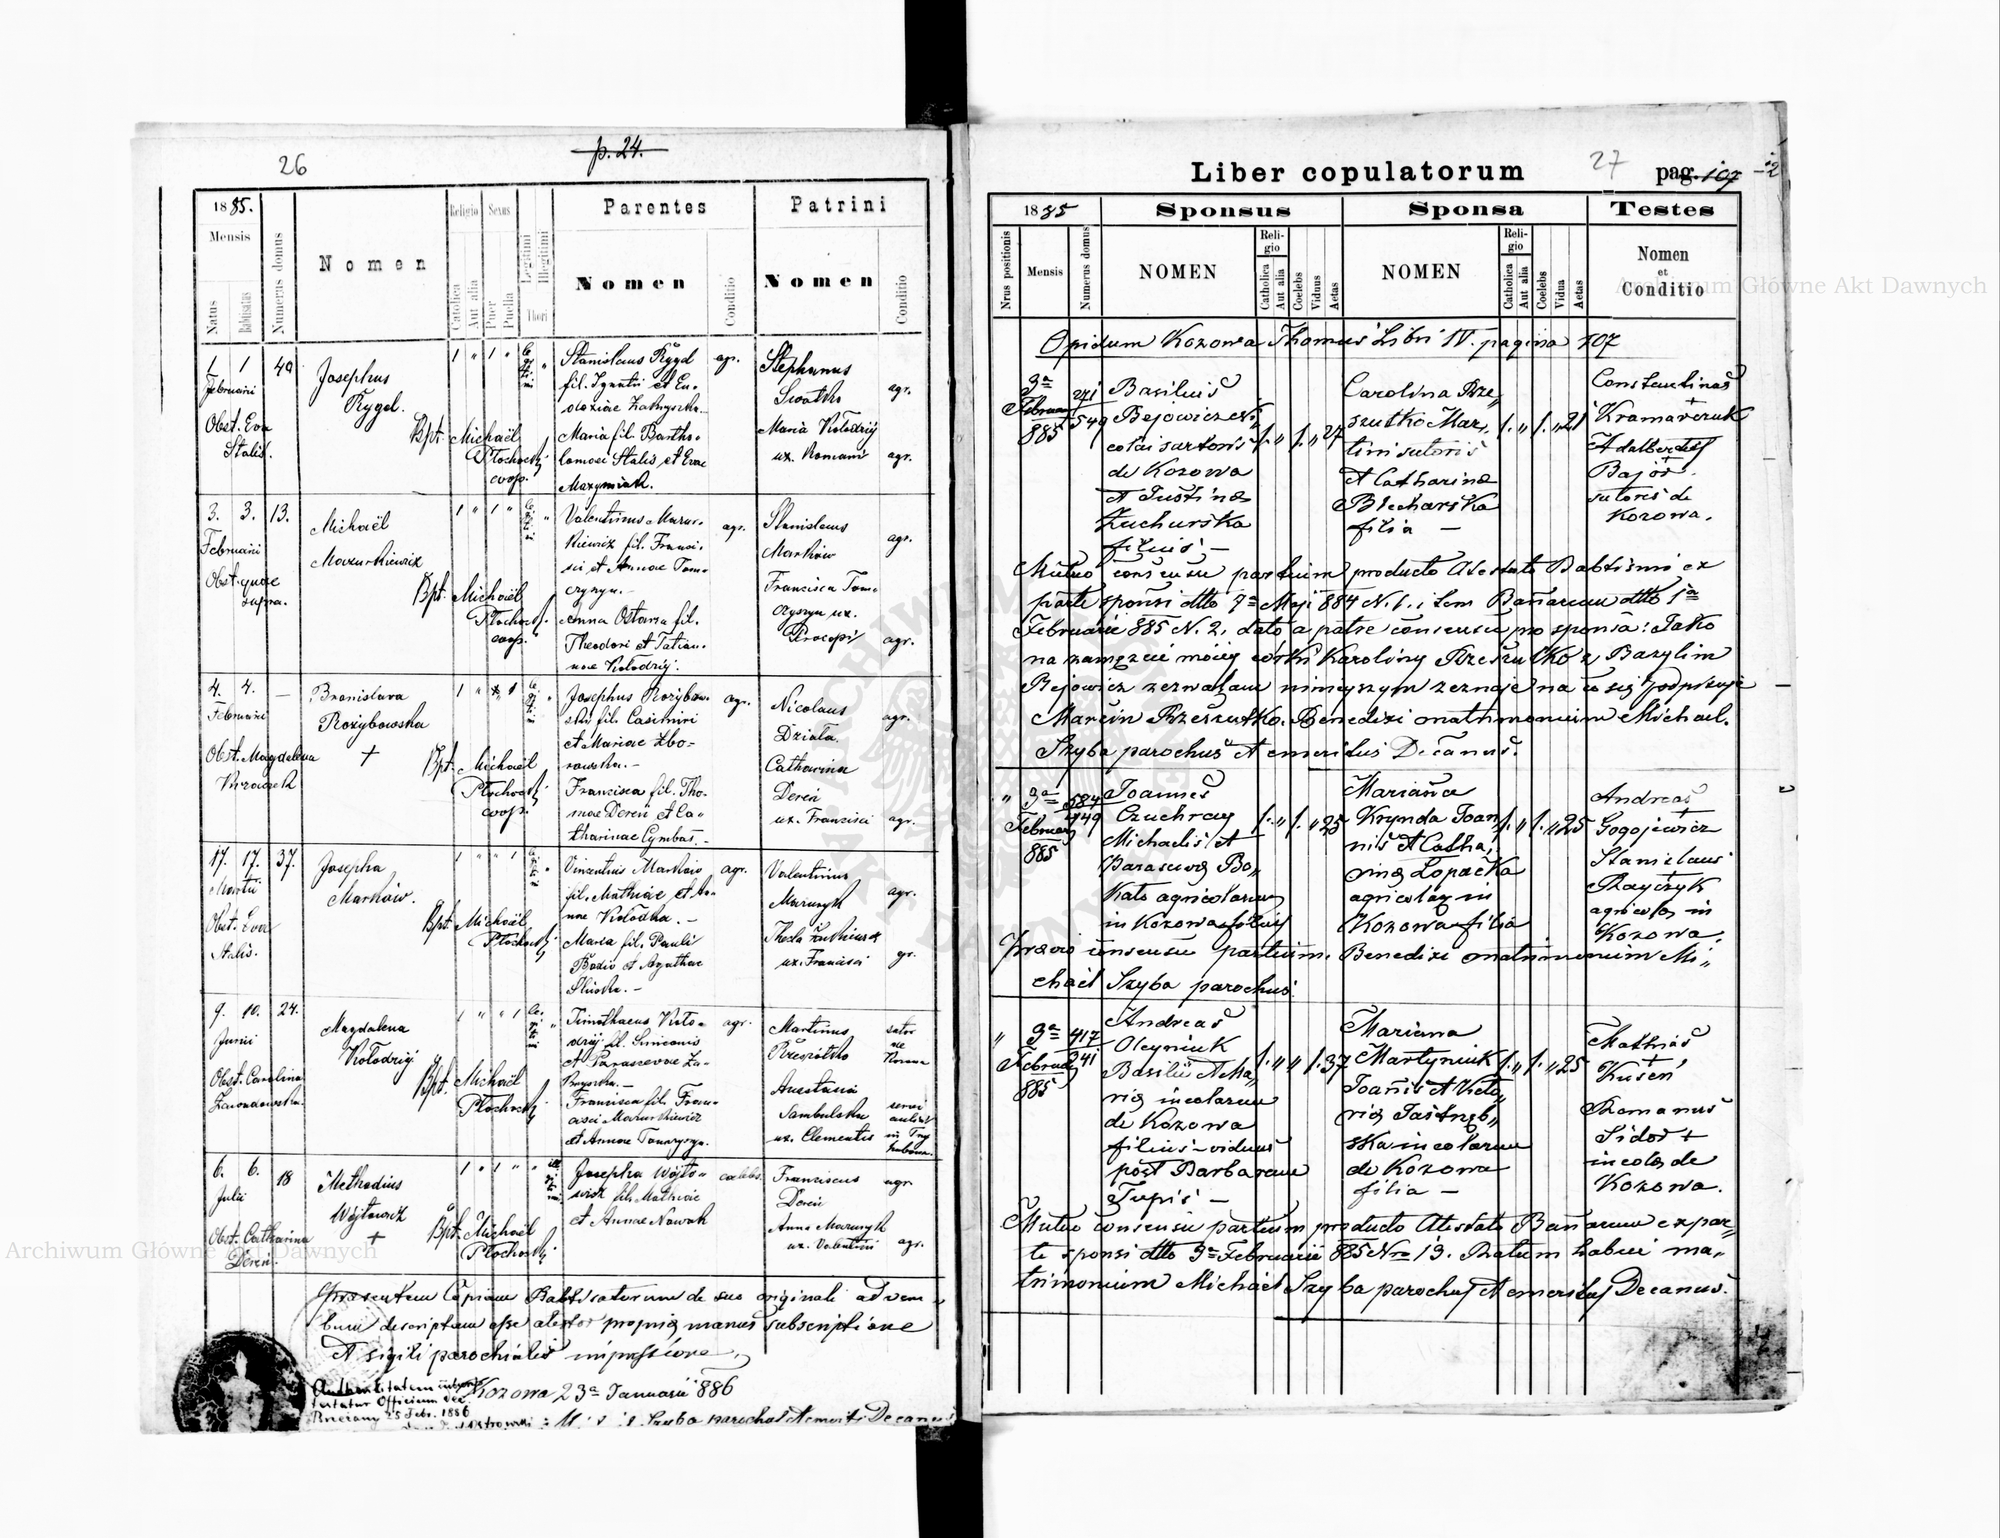 26
p. 24.
1885.
Mensis
Natus
Babtisatus
Numerus domus
Nomen
Religio
Catholica
Aut alia
Sexus
Puer
Puella
Legitimi
Illegitimi
Thori
Parentes
Nomen
Conditio
Patrini
Nomen
Conditio
1 1 49
Februarii
Obst. Eva
Stalis.
Josephus
Rygel.
Bpt. Michaël
Płochocki
coop.
Stanislaus Rygel
fil. Ignatii et Eu-
doxiae
Maria fil. Bartho-
lomaei Stalis et Evae
Maxymiak.
agr.
Stephanus
agr.
Maria Kołodzij
ux. Romani
agr.
3. 3. 13.
Februarii
Obst. quae
supra.
Michaël
Mazurkiewicz
Bpt. Michaël
Płochocki
coop.
Valentinus Mazur-
kiewicz fil. Franci-
sci et Annae Tom-
czyszyn.-
Anna fil.
Theodori et Tatian-
nae Kołodzij.
agr.
Stanislaus
Marków
agr.
Francisca Tom-
czyszyn ux.
Procopii
agr.
4. 4. —
Februarii
Obst. Magdalena
Bronislava
Rozybowska
+
Bpt. Michaël
Płochocki
coop.
Josephus Rozybow-
ski fil. Casimiri
et Mariae Zbo-
rowska.-
Francisca fil. Tho-
mae Dereń et Ca-
tharinae Cymbas.-
agr.
Nicolaus
Działa.
agr.
Catharina
Dereń
ux. Francisci
agr.
17. 17. 37.
Martii
Obst. Eva
Stalis.
Josepha
Marków.
Bpt. Michaël
Płochocki
Vinzentius Marków
fil. Mathiae et An-
nae Kołodka.-
Maria fil. Pauli
et Agathae
agr.
Valentinus
Maruszyk
agr.
Thecla
ux. Francisci
gr.
9. 10. 24.
Junii
Obst. Carolina
Magdalena
Kołodzij
Bpt. Michaël
Płochocki
Timothaeus Koło-
dzij fil. Simeonis
et Parascevae
Francisca fil. Fran-
cisci Mazurkiewicz
et Annae Tomczyszyn.
agr.
Martinus
Anastasia
Sambulska
ux. Clementis
6. 6. 18
Julii
Obst. Catharina
Dereń.
Methodius
Wojtowicz
+
Bpt. Michaël
Płochocki
Josepha Wojto-
wicz fil. Mathiae
et Annae Nowak
caelebs.
Franciscus
Dereń
agr
Anna Maruszyk
ux. Valentini
agr.
Praesentem Copiam Babtisatorum de suo originali ad ver-
bum descriptam esse atestor propriæ manus subscriptione
Et sigili parochialis impressione.
Kozowa 23a Januarii 886
Brzeżany 25 Febr. 1886
Szyba parochus et Emerit. Decanus
Liber copulatorum
27
pag. 107
1885
Nrus positionis
Mensis
Numerus domus
Sponsus
NOMEN
Religio
Catholica
Aut alia
Coelebs
Viduus
Aetas
Sponsa
NOMEN
Religio
Catholica
Aut alia
Coelebs
Vidua
Aetas
Testes
Nomen
et
Conditio
Opidum Kozowa Thomus Libri IV. pagina 107
3a
Februar
885
271
549
Basilius
Bejowicz Ni„
colai sartoris
de Kozowa
et Justinæ
Zuchurska
filius —
1. „ 1. „ 27
Carolina Rze„
szutko Mar„
tini sutoris
et Catharinæ
Blecharska
filia —
1. „ 1. „ 21
Constantinus
+
Kramarczuk
Adalbertus
+
Bajor.
sutores de
Kozowa.
Mutuo consensu partium producto Atestato Babtismi ex
parte sponsi dtto 7a Maji 884 N. 1. item Banarum dtto 1a
Februarii 885 N. 2. dato a patre consensu pro sponsa: Jako
na zamęzcie mojej córki Karoliny Rzeszutko z Bazylim
Bejowicz zezwalam niniejszym zeznaję na co się podpisuje
Marcin Rzeszutko. Benedixi matrimonium Michael.
Szyba parochus et emeritus Decanus.
„ 3a
Februar
885
584
449
Joannes
Czuchraj
Michaelis et
Parascevæ Bo„
Kało agricolarum
in Kozowa filius
1. „ 1. „ 25
Marianna
Krynda Joan„
nis et Catha„
rinæ Łopacka
agricolæ in
Kozowa filia
1. „ 1. „ 25
Andreas
+
Gogojewicz
Stanislaus
+
Rayczyk
agricolæ in
Kozowa.
Prævio consensu partium. Benedixi matrimonium Mi„
chael Szyba parochus
„ 3a
Februar
885
417
241
Andreas
Oleyniuk
Basilii et Ma„
riæ incolarum
de Kozowa
filius viduus
post Barbaram
Tupis —
1. „ „ 1. 37
Mariana
Martyniuk
Joannis et Victo„
riæ Jastrzęb„
ska incolarum
de Kozowa
filia —
1. „ 1. „ 25
Mathias
+
Kuseń
Romanus
Sidor +
incolæ de
Kozowa.
Mutuo consensu partium producto Atestato Banarum ex par„
te sponsi dtto 3a Februarii 885 Nro 13. Ratum habui ma„
trimonium Michael Szyba parochus et emeritus Decanus.
Archiwum Główne Akt Dawnych
Archiwum Główne Akt Dawnych